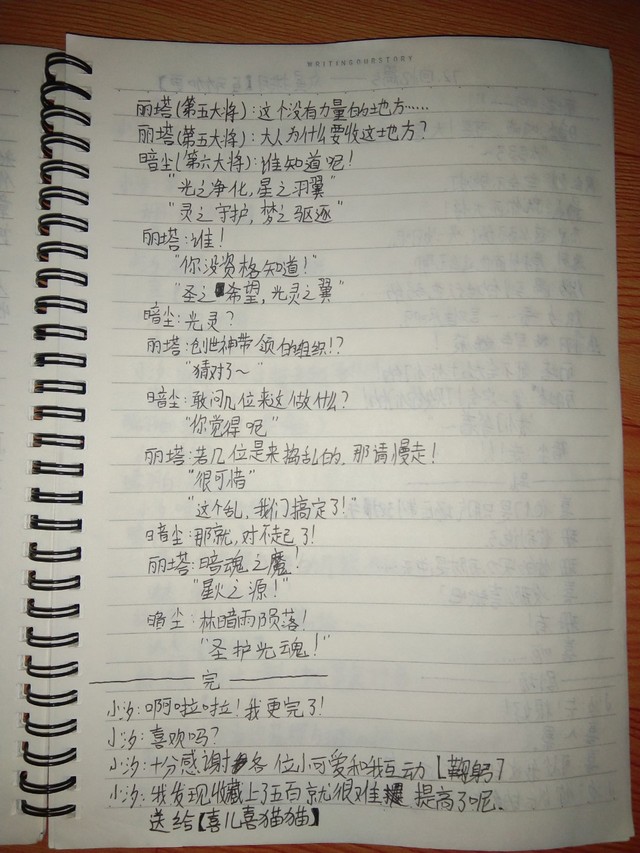 WRITING OUR STORY
丽塔(第五大将):这个没有力量的地方……
丽塔(第五大将):大人为什么要收这地方?
暗尘(第六大将):谁知道呢!
"光之净化,星之羽翼"
"灵之守护,梦之驱逐"
丽塔:谁!
"你没资格知道!"
"圣之希望,光灵之翼"
暗尘:光灵?
丽塔:创世神带领的组织!?
"猜对了~"
暗尘:敢问几位来这做什么?
"你觉得呢"
丽塔:若几位是来捣乱的,那请慢走!
"很可惜"
"这个乱,我们搞定了!"
暗尘:那就,对不起了!
丽塔:暗魂之魔!
"星火之源!"
暗尘:林暗雨陨落!
"圣护光魂!"
完
小汐:啊啦啦!我更完了!
小汐:喜欢吗?
小汐:十分感谢各位小可爱和我互动【鞠躬】
小汐:我发现收藏上了五百就很难提高了呢.
送给【喜儿喜猫猫】